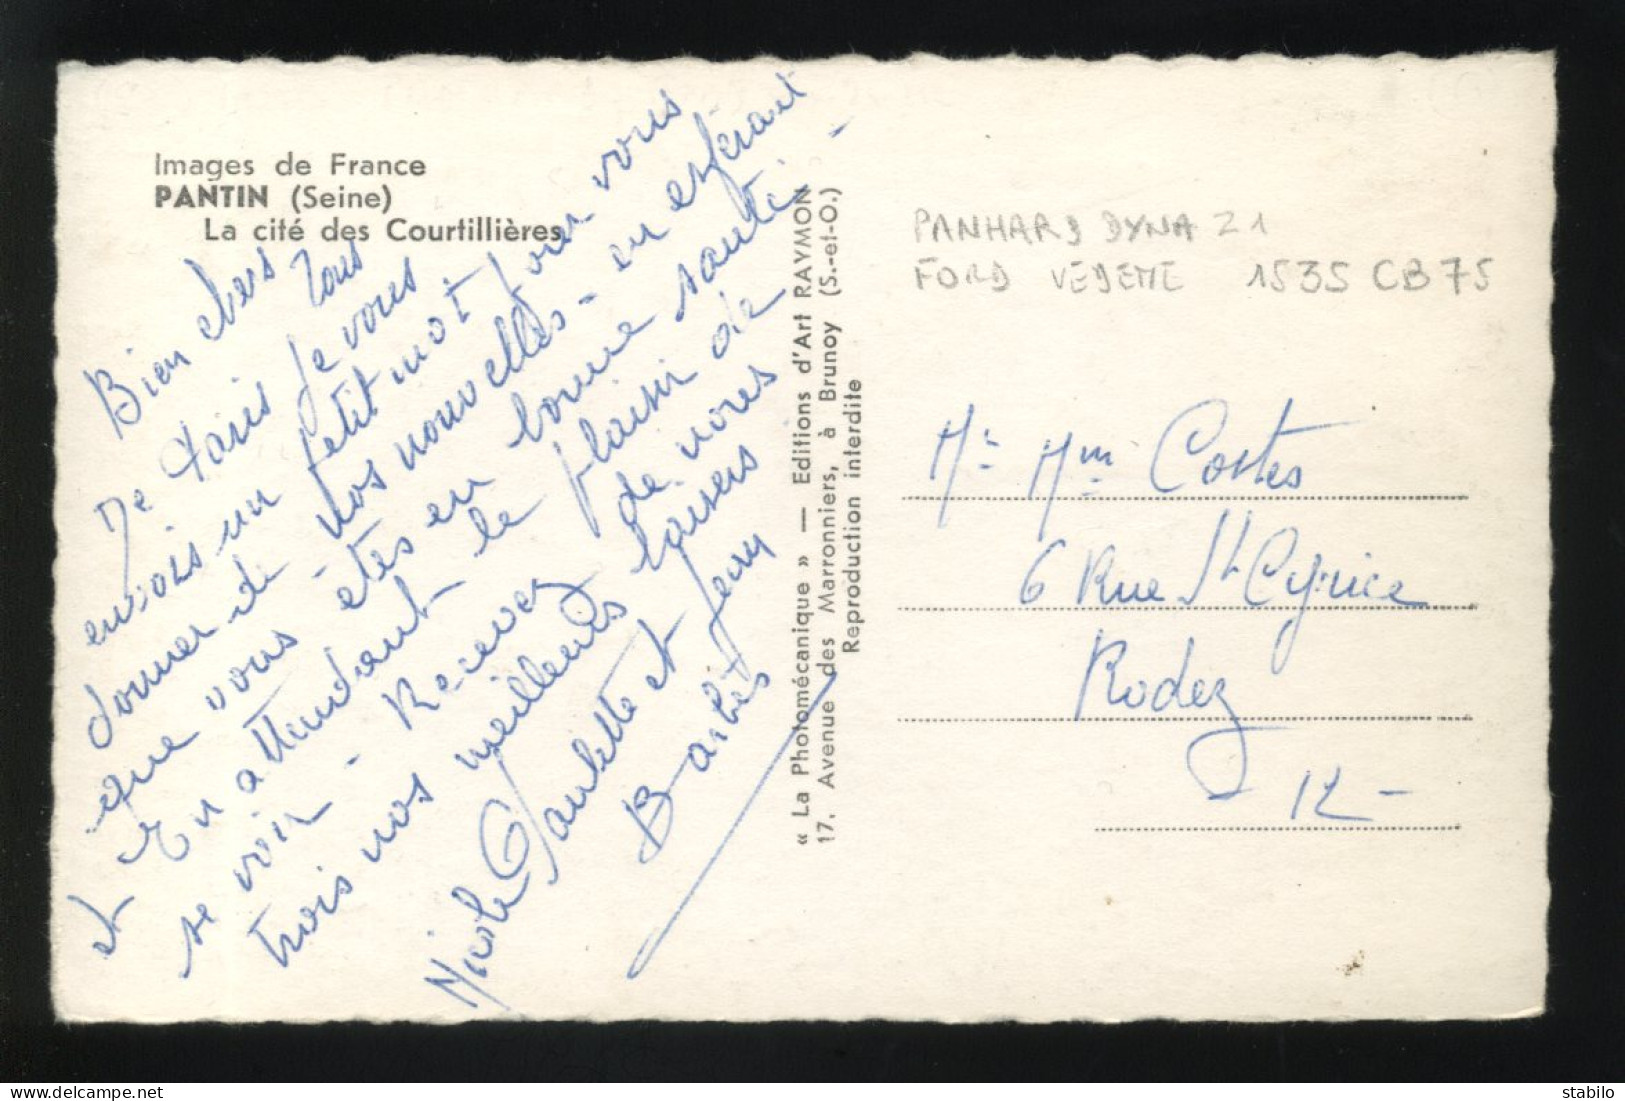 Images de France
PANTIN (Seine)
La cité des Courtillières
Bien chers Tous
De Paris je vous
envois un petit mot pour vous
donner de nos nouvelles - en espérant
que vous êtes en bonne santé -
et En attendant le plaisir de
se voir - Recevez de nous
trois nos meilleurs baisers
Nicole Paulette et Jean
Barbès
« La Photomécanique » — Editions d'Art RAYMON
17, Avenue des Marronniers, à Brunoy (S.-et-O.)
Reproduction interdite
PANHARD DYNA Z1
FORD VEDETTE 1535 CB 75
Mr Mme Costes
6 Rue St Cyrice
Rodez
- 12 -
stabilo